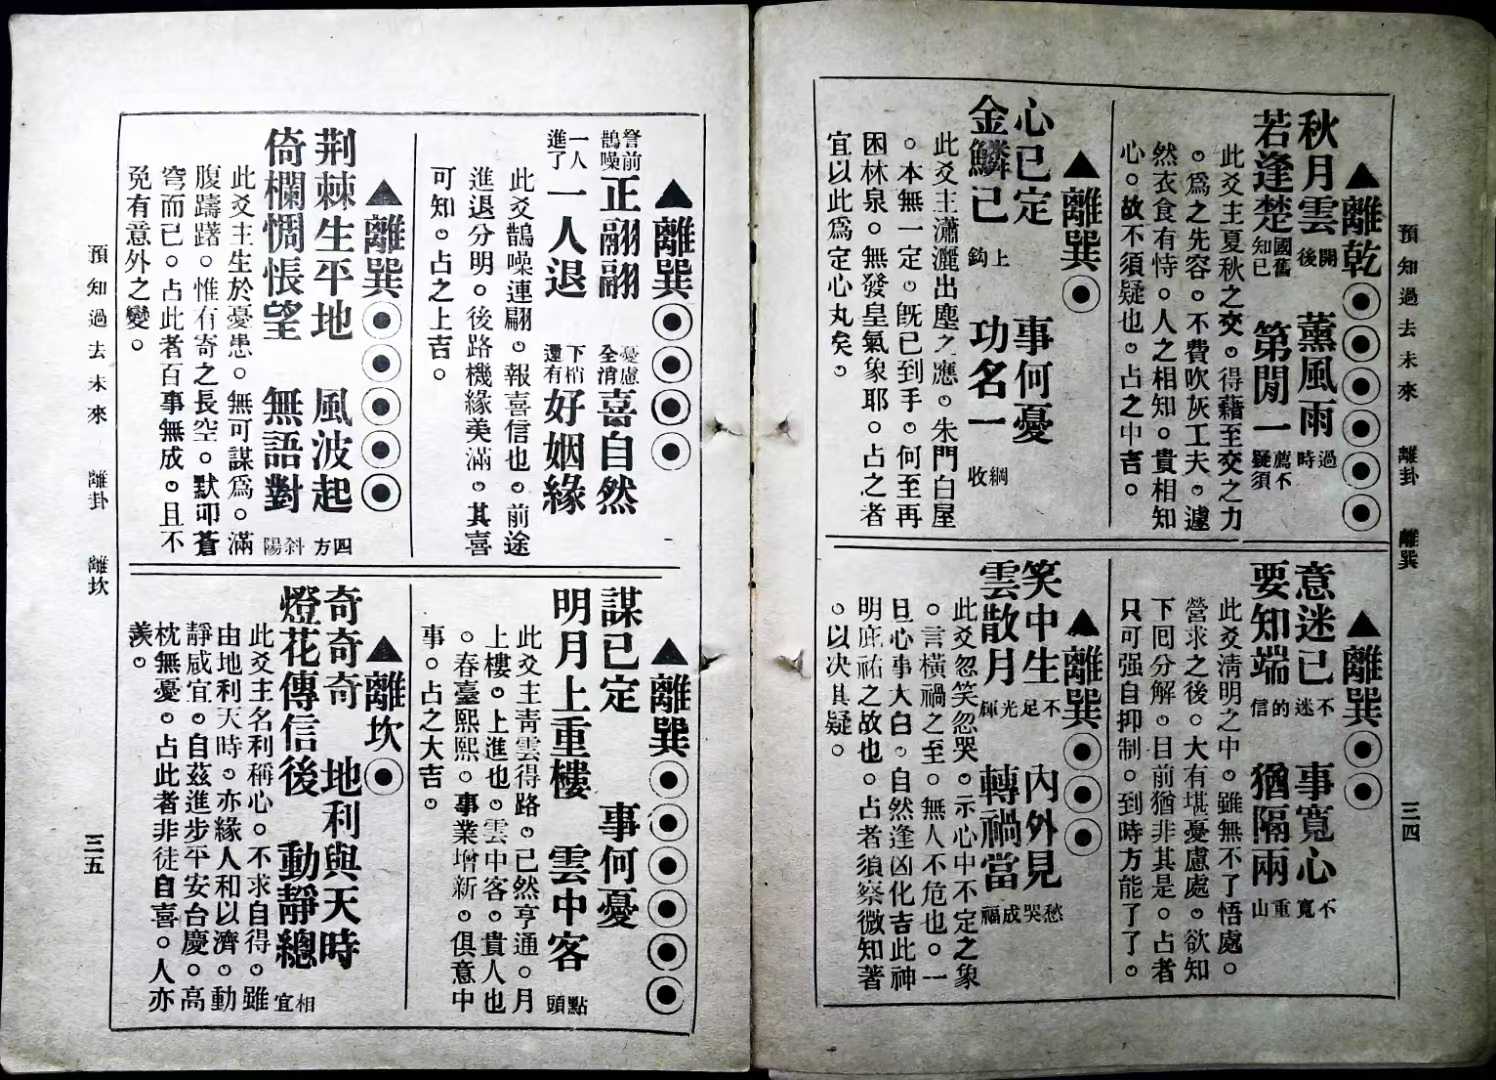 預知過去未來　離卦　離巽　三四
▲離乾◉◉◉◉◉◉
秋月雲開後　薰風雨過時
若逢楚國舊知己　第閒一薦不須疑
此爻主夏秋之交。得藉至交之力
。爲之先容。不費吹灰工夫。遽
然衣食有恃。人之相知。貴相知
心。故不須疑也。占之中吉。
▲離巽◉
心已定　上　事何憂
金鱗已　鈎　功名一　綱收
此爻主瀟灑出塵之應。朱門白屋
。本無一定。旣已到手。何至再
困林泉。無發皇氣象耶。占之者
宜以此爲定心丸矣。
▲離巽◉◉
意迷已不迷　事寬心不寬
要知端的信　猶隔兩重山
此爻淸明之中。雖無不了悟處。
營求之後。大有堪憂慮處。欲知
下囘分解。目前猶非其是。占者
只可强自抑制。到時方能了了。
▲離巽◉◉◉
笑中生不足　內外見愁哭
雲散月光輝　轉禍當成福
此爻忽笑忽哭。示心中不定之象
。言橫禍之至。無人不危也。一
旦心事大白。自然逢凶化吉此神
明庇祐之故也。占者須察微知著
。以決其疑。
▲離巽◉◉◉◉
簷前鵲噪正翩翩　憂慮全消喜自然
一人進了一人退　下梢還有好姻緣
此爻鵲噪連翩。報喜信也。前途
進退分明。後路機緣美滿。其喜
可知。占之上吉。
▲離巽◉◉◉◉◉
荆棘生平地　風波起四方
倚欄惆悵望　無語對斜陽
此爻主生於憂患。無可謀爲。滿
腹躊躇。惟有寄之長空。默叩蒼
穹而已。占此者百事無成。且不
免有意外之變。
▲離巽◉◉◉◉◉◉
謀已定　事何憂
明月上重樓　雲中客點頭
此爻主靑雲得路。已然亨通。月
上樓。上進也。雲中客。貴人也
。春臺熙熙。事業增新。俱意中
事。占之大吉。
▲離坎◉
奇奇奇　地利與天時
燈花傳信後　動靜總相宜
此爻主名利稱心。不求自得。雖
由地利天時。亦緣人和以濟。動
靜咸宜。自茲進步平安台慶。高
枕無憂。占此者非徒自喜。人亦
羨。
預知過去未來　離卦　離坎　三五